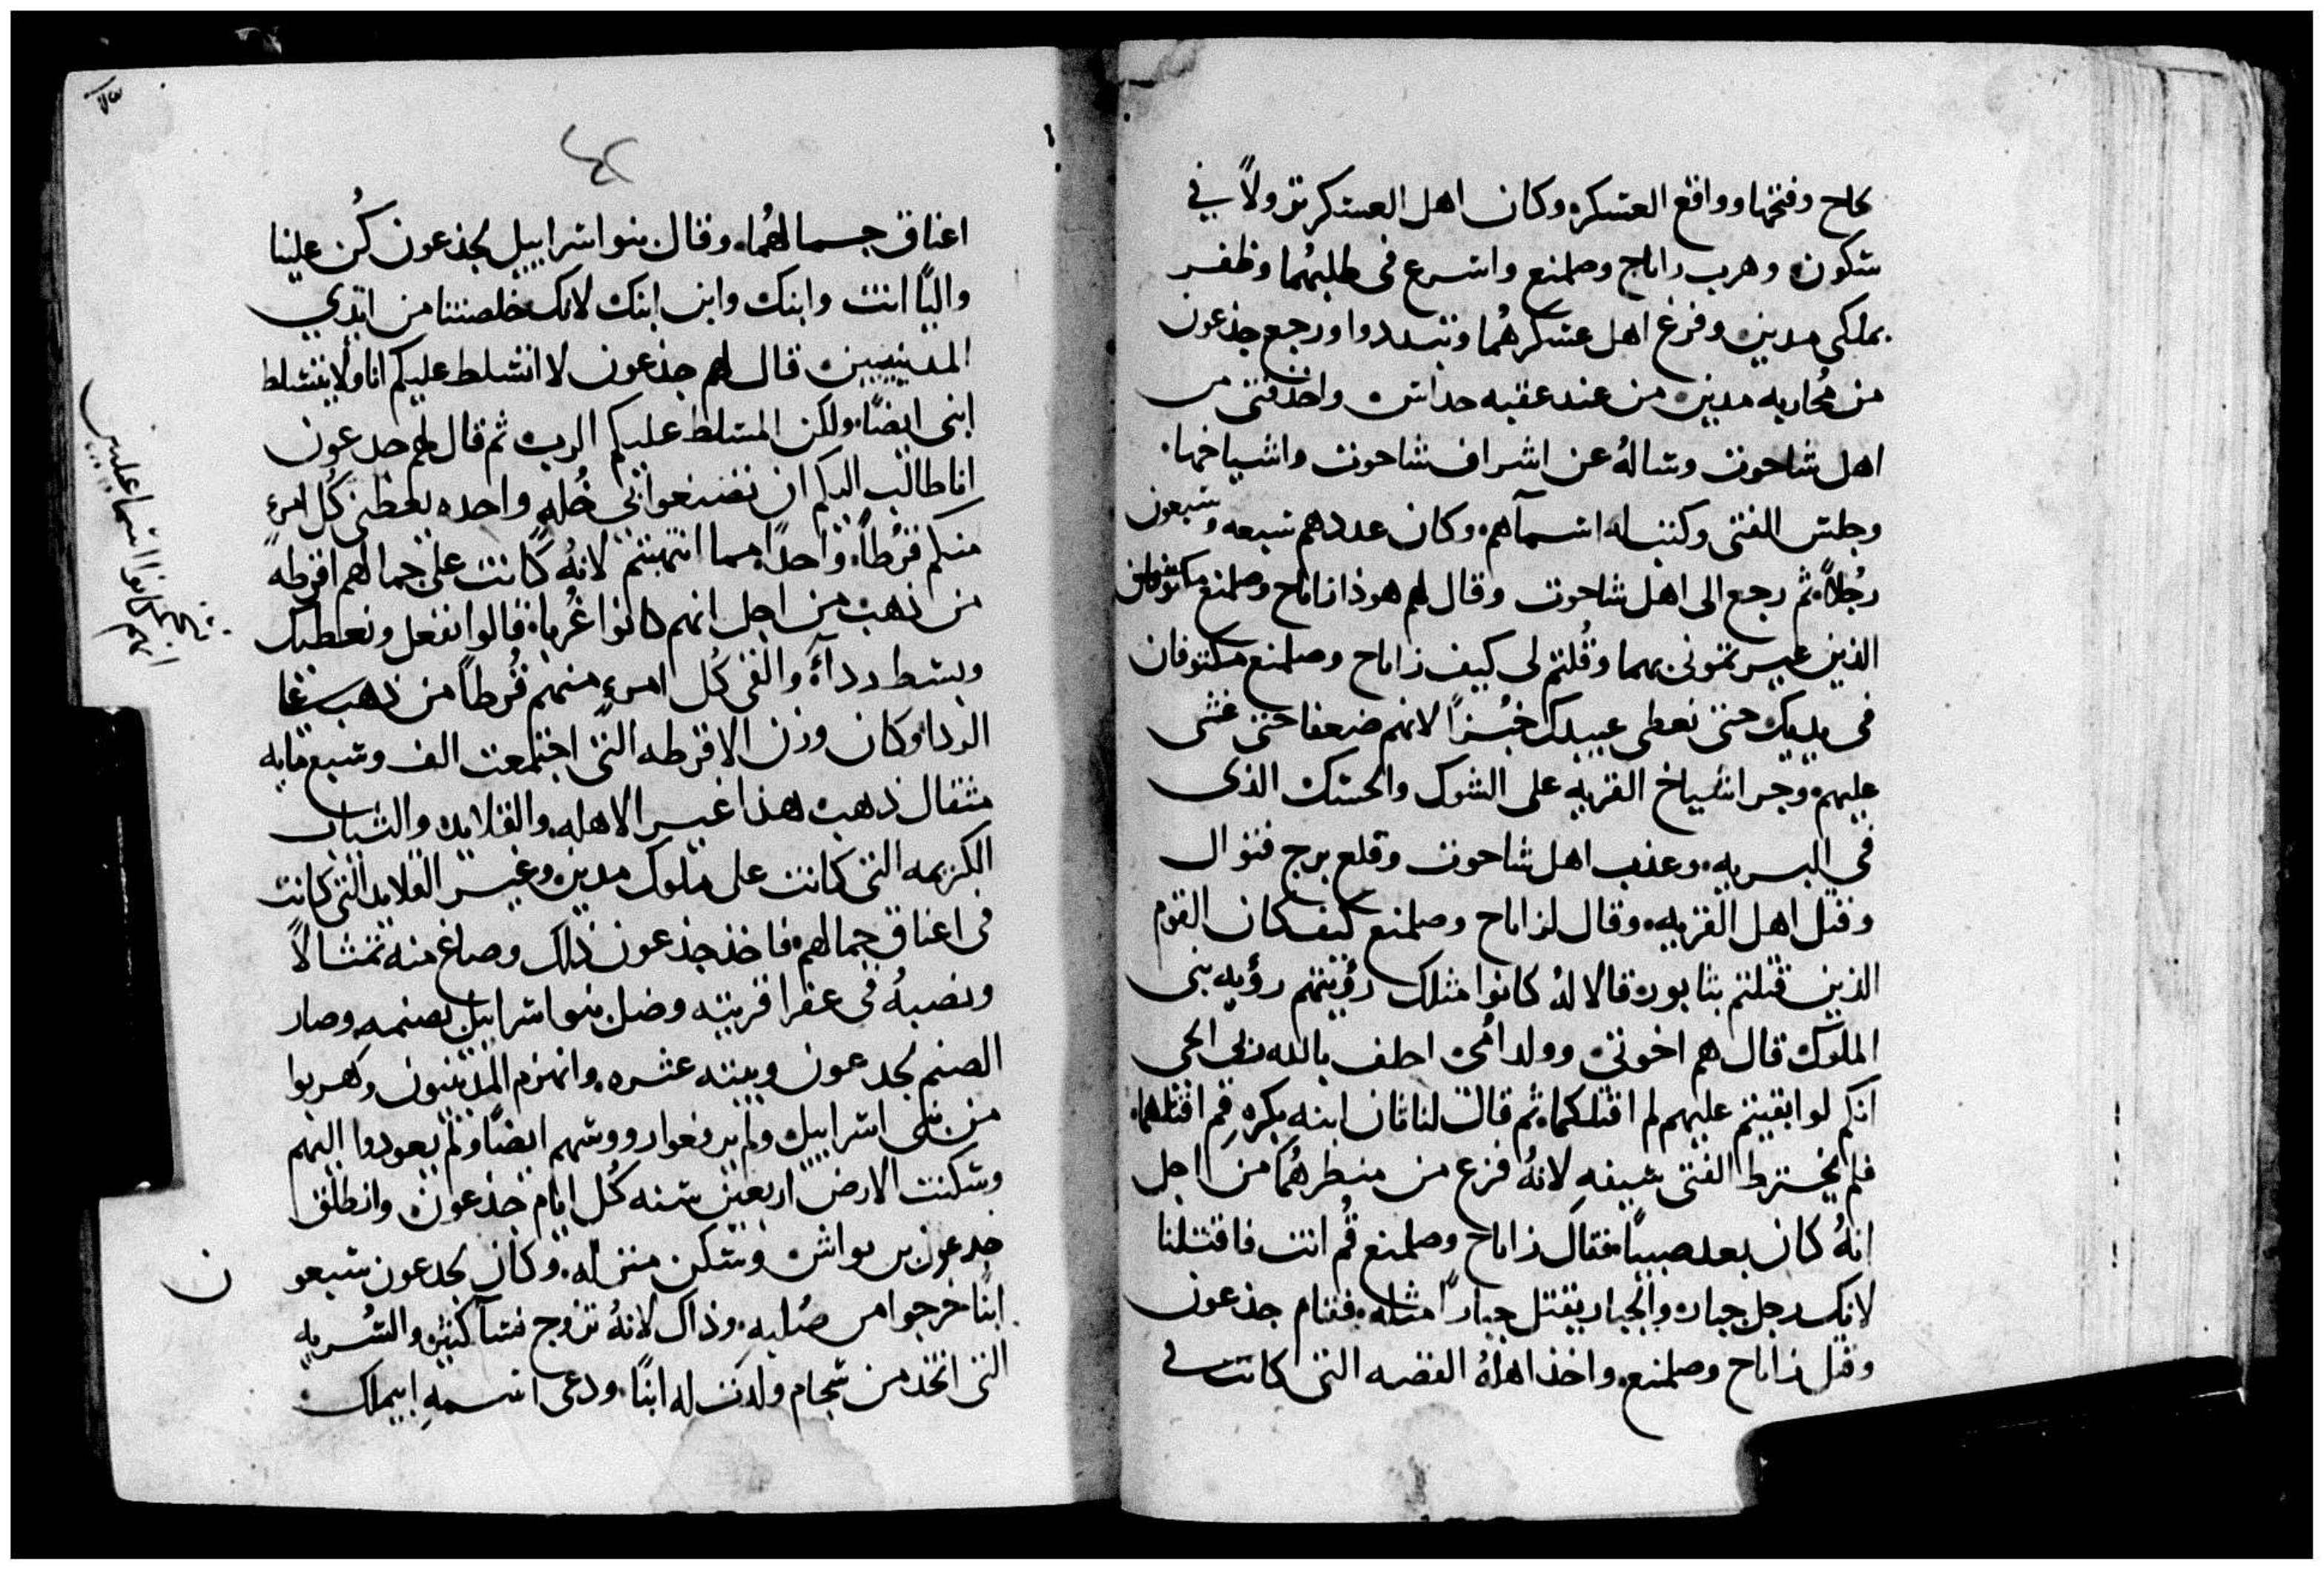 كاح وفتحها وواقع العسكر وكان اهل العسكر نزولاً في
سكون وهرب زاباح وصلمنع واسرع في طلبهما وظفر
بملكي مدين وفزع اهل عسكرهما وتبددوا ورجع جذعون
من محاربه مدين من عند عقبه حداس واخذ فتى من
اهل شاحوت وساله عن اشراف شاحوت واشياخها
وجلس الفتى وكتب له اسمآهم وكان عددهم سبعه وسبعون
رجُلاً ثم رجع الى اهل شاحوت وقال لهم هوذا زاباح وصلمنع مكتوفان
الذين عيرتموني بهما وقُلتم لي كيف زاباح وصلمنع مكتوفان
في يديك حتى نعطي عبيدك خبزاً لانهم ضعفا حتى غشى
عليهم وجر اشياخ القريه على الشوك والحسك الذي
في البريه وعذب اهل شاحوت وقلع برج فنوال
وقتل اهل القريه وقال لزاباح وصلمنع كيف كان القوم
الذين قتلتم بتابور قالا لهُ كانوا مثلك رؤيتهم رؤيه بني
الملوك قال هم اخوتي وولد اُمي احلف بالله ربي الحي
انكم لو ابقيتم عليهم لم اقتلكما ثم قال لناثان ابنه بكره قم اقتلهما
فلم يخترط الفتى سيفهِ لانهُ فزع من منظرهُما من اجل
انهُ كان بعد صبياً فقال زاباح وصلمنع قُم انت فاقتلنا
لانك رجل جبار والجبار يقتل جباراً مثله فقام جذعون
وقتل زاباح وصلمنع واخذ اهلهُ الفضه التي كانت في
٤٢
اعناق جمالهُما وقال بنو اسراييل لجذعون كُن علينا
والياً انت وابنك وابن ابنك لانك خلصتنا من ايدي
المدينيين قال لهم جذعون لا اتسلط عليكم انا ولا يتسلط
ابني ايضاً ولكن المتسلط عليكم الرب ثم قال لهم جدعون
انا طالب اليكم ان تصنعوا بي خُله واحده يعطني كُل امرءٍ
منكم قرُطاً واحداً مما انتهبتم لانهُ كانت على جمالهم اقرطه
من ذهب من اجل انهم كانوا غُربا قالوا نفعل ونعطيك
وبسط ردآهُ والقى كُل امرءٍ منهم قُرطاً من ذهب على
الردا وكان وزن الاقرطه التي اجتمعت الف وسبع مايه
مثقال ذهب هذا غير الاهله والقلايد والثياب
الكريمه التي كانت على ملوك مدين وغير القلايد التي كانت
في اعناق جمالهم فاخذ جذعون ذلك وصاغ منه تمثالاً
ونصبهُ في عفرا قريته وضل بنو اسراييل بصنمه وصار
الصنم لجدعون وبيته عثره وانهزم المدينيون وهربوا
من بني اسراييل ولم يرفعوا رووسهم ايضاً ولم يعودوا اليهم
وسكنت الارض اربعين سنه كُل ايام جذعون وانطلق
جدعون بن يواش وسكن منزله وكان لجدعون سبعون
ابناً خرجوا من صُلبه وذاك لانهُ تزوج نسآ كثيره والسُريه
التي اتخذ من شجام ولدت له ابناً ودعى اسمهِ ابيملك
انهم كانوا اسماعليين